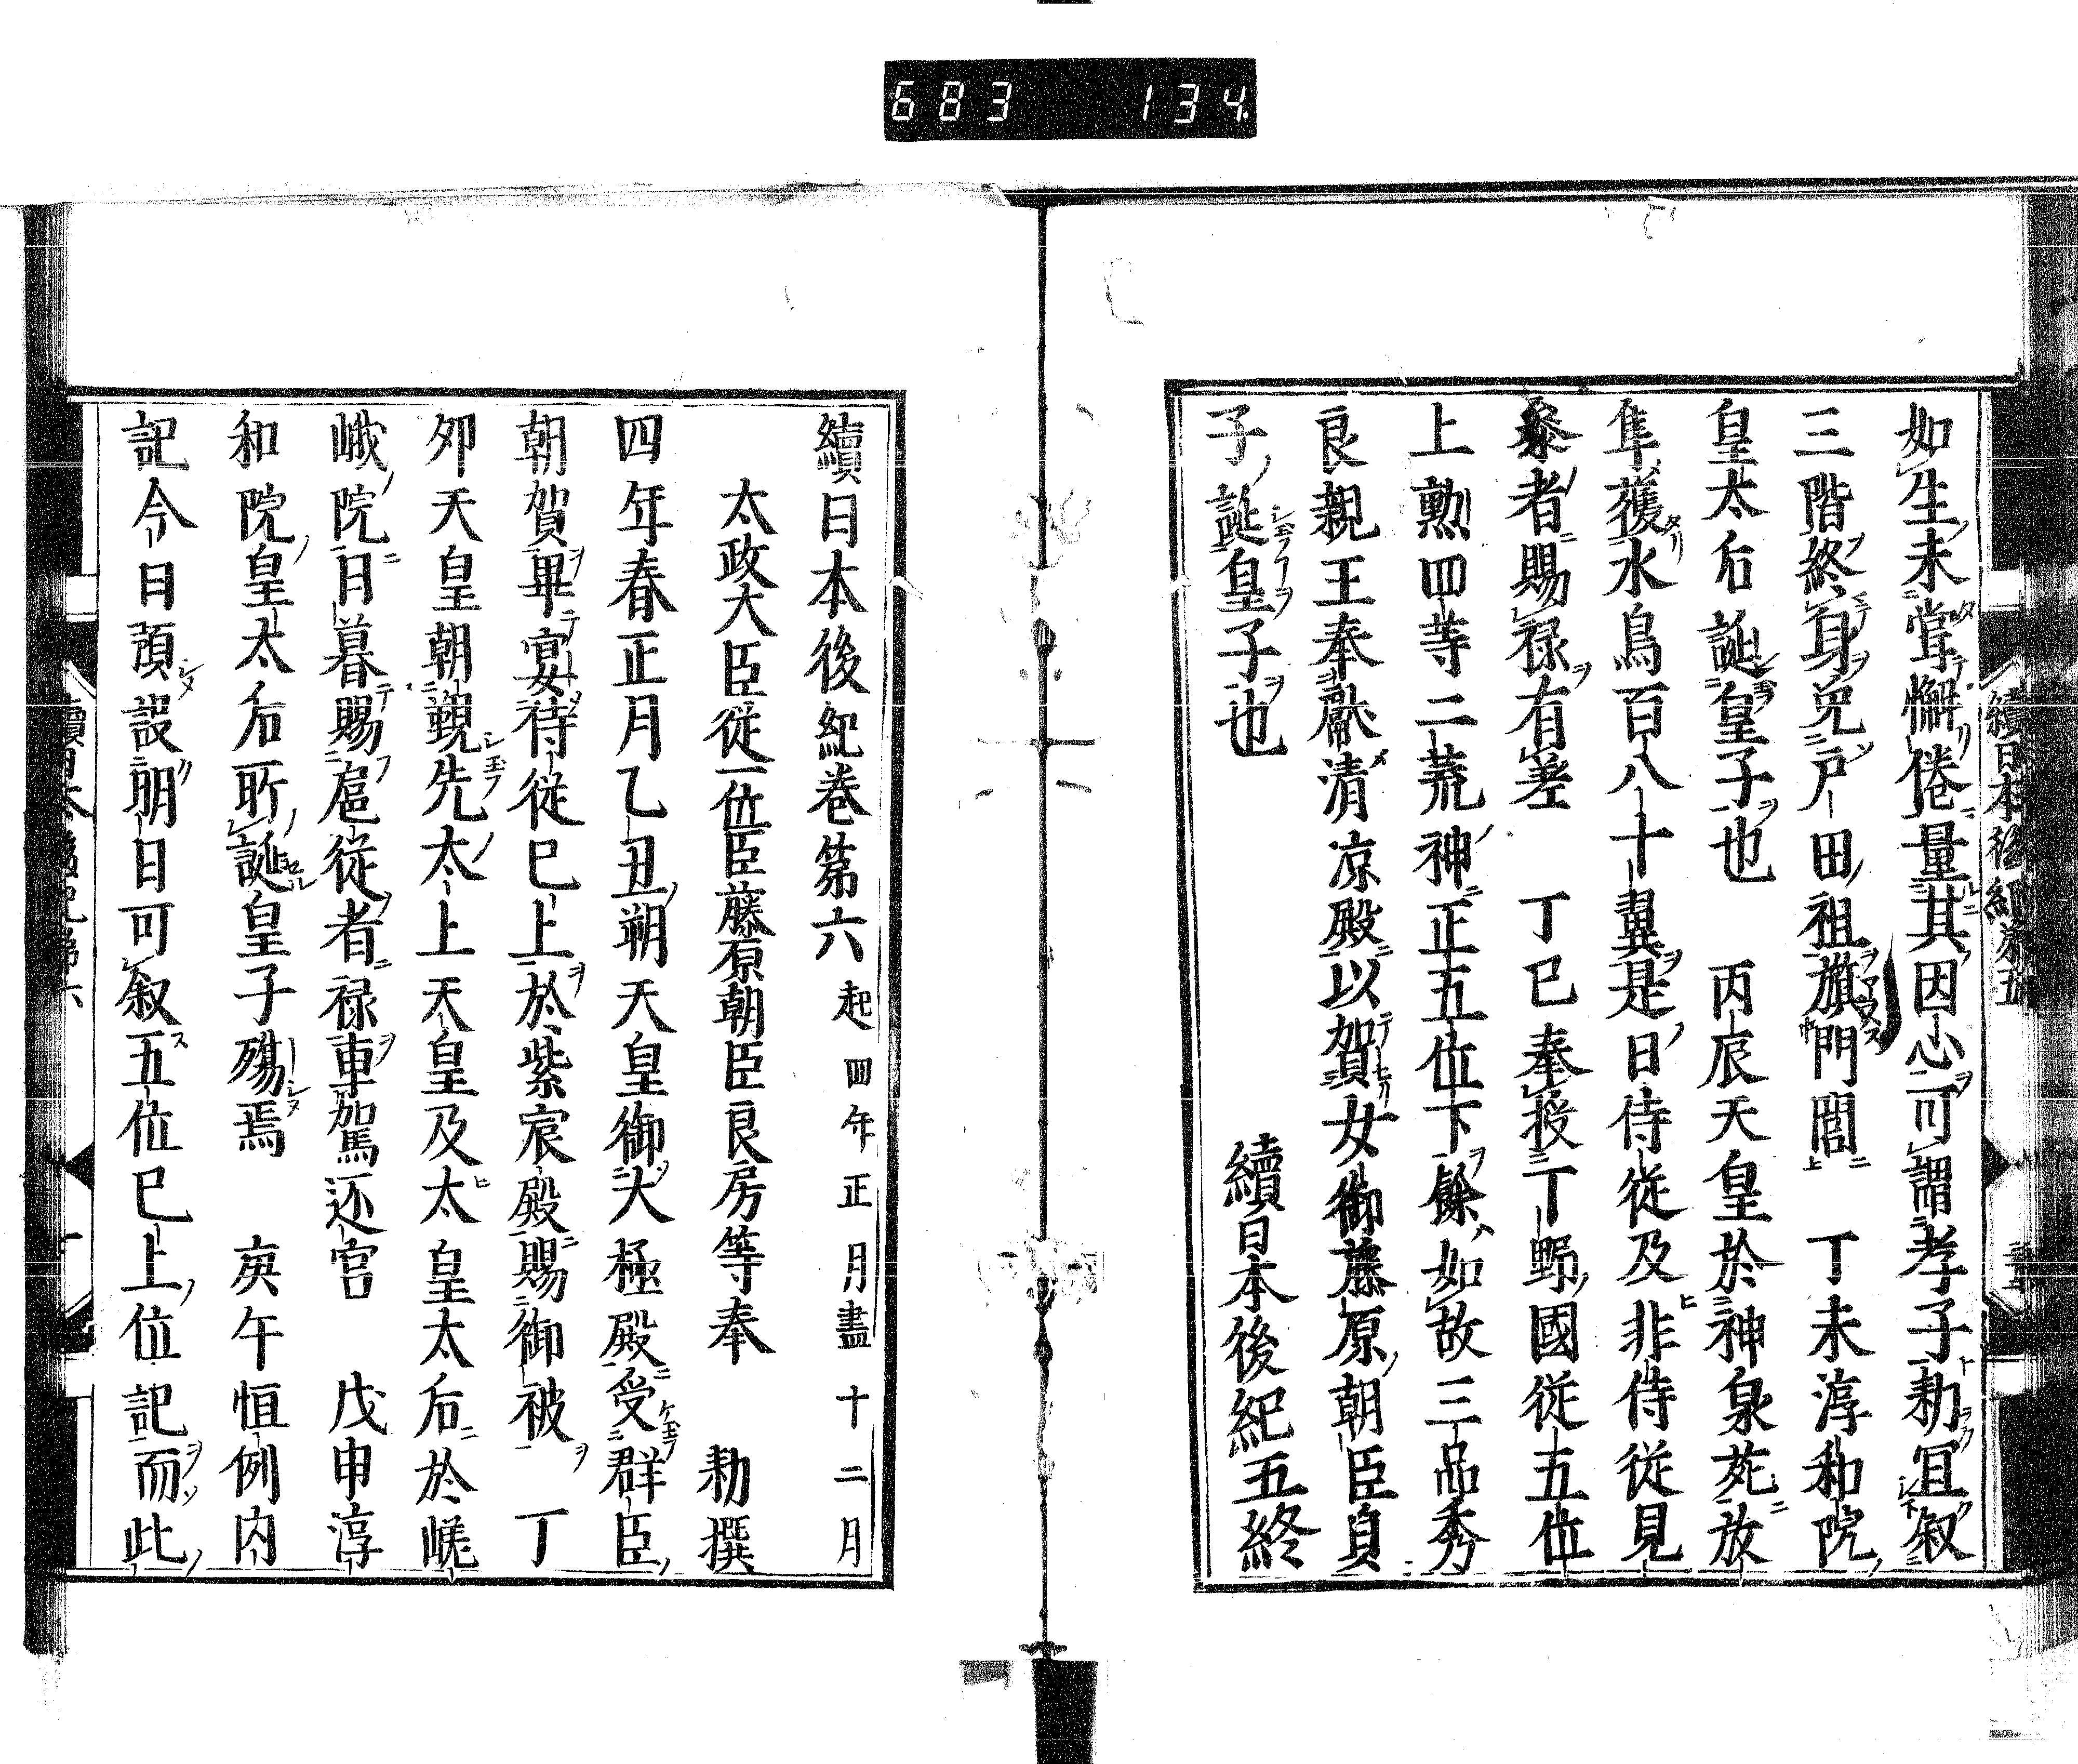 683 134
續日本後紀第五
如生未甞懈倦量其因心可謂孝子勅宜叙
三階終身免戸田租旗門閭 丁未淳和院
皇太后誕皇子也 丙辰天皇於神泉苑放
隼獲水鳥百八十翼是日侍從及非侍從見
叅者賜禄有差 丁巳奉授下野國從五位
上勲四等二荒神正五位下餘如故三品秀
良親王奉獻清凉殿以賀女御藤原朝臣貞
子誕皇子也 續日本後紀五終
續日本後紀巻第六 起四年正月盡十二月
太政大臣從一位臣藤原朝臣良房等奉 勅撰
四年春正月乙丑朔天皇御大極殿受群臣
朝賀畢宴侍從已上於紫宸殿賜御被 丁
夘天皇朝覲先太上天皇及太皇太后於嵯
峨院日暮賜扈從者禄車駕还宮 戊申淳
和院皇太后所誕皇子殤焉 庚午恒例内
記今日預設明日可叙五位已上位記而此